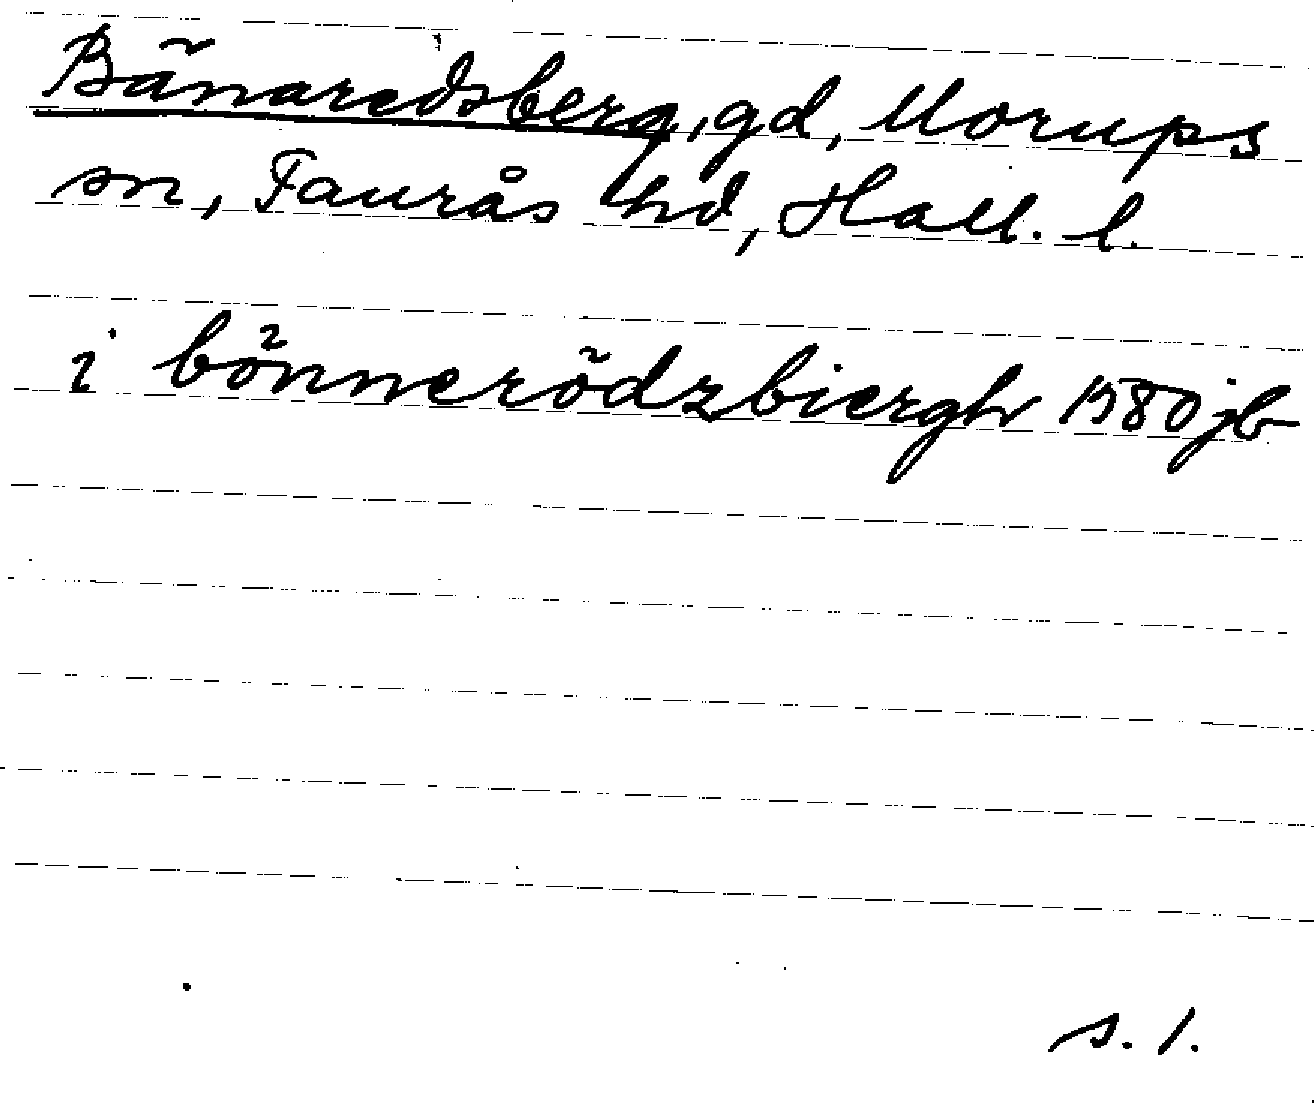 Bänaredsberg, gd, Morups
sn, Faurås hd, Hall. l.
i bönnerödzbiergh 1580 jb
s. 1.